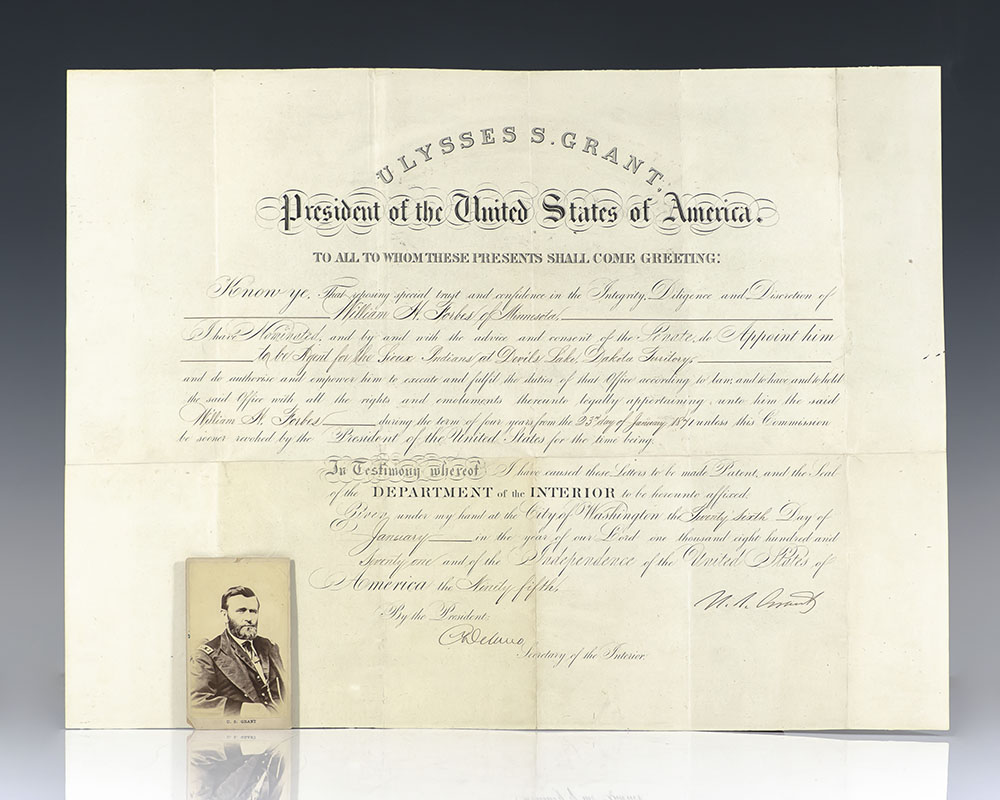 ULYSSES S. GRANT,
President of the United States of America.
TO ALL TO WHOM THESE PRESENTS SHALL COME GREETING:
Know ye, That reposing special trust and confidence in the Integrity, Diligence and Discretion of
William H. Forbes of Minnesota,
I have Nominated, and by and with the advice and consent of the Senate, do Appoint him
to be Agent for the Sioux Indians at Devils Lake, Dakota Territory,
and do authorise and empower him to execute and fulfil the duties of that Office according to law, and to have and to hold
the said Office with all the rights and emoluments thereunto legally appertaining, unto him the said
William H. Forbes during the term of four years from the 23rd day of January 1871 unless this Commission
be sooner revoked by the President of the United States for the time being.
In Testimony whereof I have caused these Letters to be made Patent, and the Seal
of the DEPARTMENT of the INTERIOR to be hereunto affixed.
Given under my hand at the City of Washington the Twenty sixth Day of
January in the year of our Lord one thousand eight hundred and
Seventy one and of the Independence of the United States of
America the Ninety fifth.
U. S. Grant
By the President:
C Delano
Secretary of the Interior.
U. S. GRANT